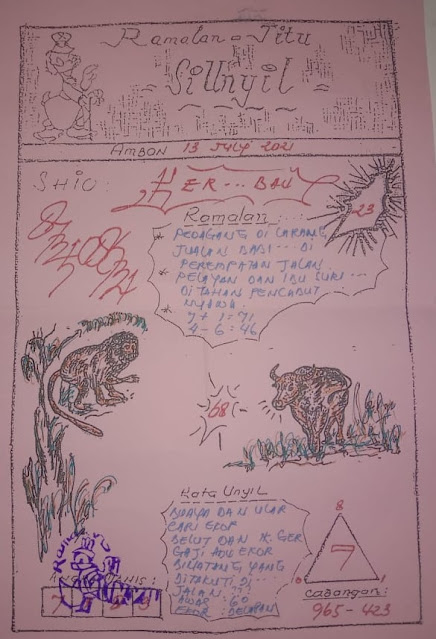 Ramalan = Jitu
= SiUnyil =
AMBON 13 JULY 2021
SHIO:
ER... BAU
23
Ramalan:
* PEDAGANG DI LARANG
JUALAN BABI... DI
PEREMPATAN JALAN
* PELAYAN DAN IBU SURI...
DI TAHAN PENCABUT
NYAWA.
* 7 + 1 : 71
4 - 6 : 46
68
Kata Unyil
BUAYA DAN ULAR
CARI EKOR
BELUT DAN
GAJI ADU EKOR
BINATANG YANG
DITAKUTI DI
JALAN
AWAS : 60
EKOR : DELAPAN
8
7
0 1
Cabangan:
965 - 423